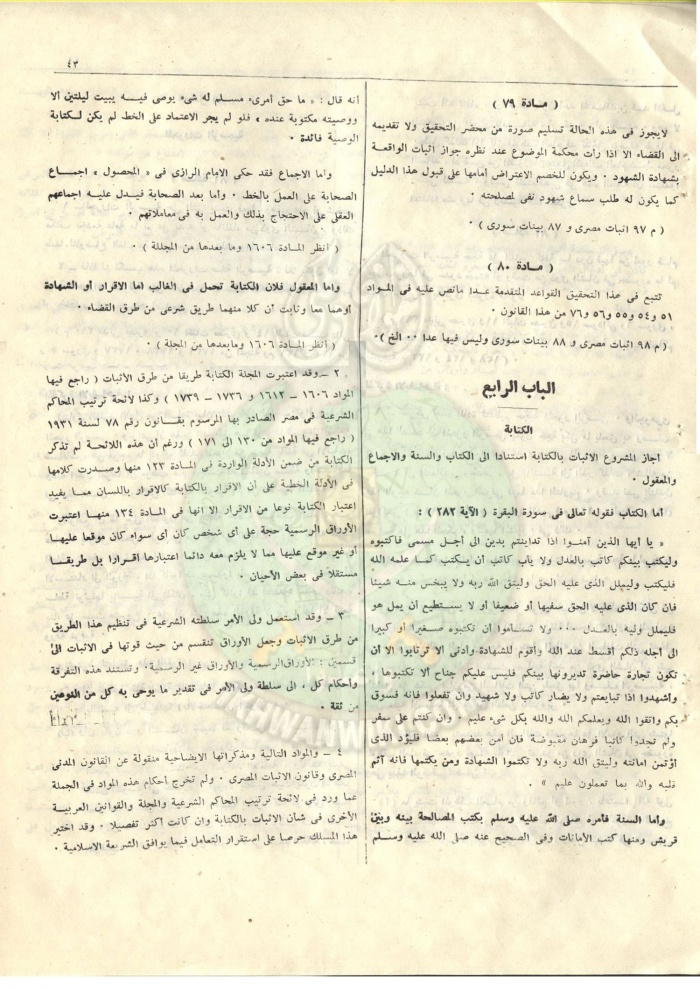 ٤٣
( مادة ٧٩ )
لايجوز فى هذه الحالة تسليم صورة من محضر التحقيق ولا تقديمه
الى القضاء الا اذا رأت محكمة الموضوع عند نظره جواز اثبات الواقعة
بشهادة الشهود ٠ ويكون للخصم الاعتراض أمامها على قبول هذا الدليل
كما يكون له طلب سماع شهود نفى لمصلحته ٠
( م ٩٧ اثبات مصرى و ٨٧ بينات سورى ) ٠
( مادة ٨٠ )
تتبع فى هذا التحقيق القواعد المتقدمة عدا مانص عليه فى المواد
٥١ و٥٤ و٥٥ و٥٦ و٧٦ من هذا القانون ٠
( م ٩٨ اثبات مصرى و ٨٨ بينات سورى وليس فيها عدا ٠٠ الخ ) ٠
الباب الرابع
الكتابة
أجاز المشروع الاثبات بالكتابة استنادا الى الكتاب والسنة والاجماع
والمعقول ٠
أما الكتاب فقوله تعالى فى سورة البقرة ( الآية ٢٨٢ ) :
« يا أيها الذين آمنوا اذا تداينتم بدين الى أجل مسمى فاكتبوه
وليكتب بينكم كاتب بالعدل ولا ياب كاتب أن يكتب كما علمه الله
فليكتب وليملل الذى عليه الحق وليتق الله ربه ولا يبخس منه شيئا
فان كان الذى عليه الحق سفيها أو ضعيفا أو لا يستطيع أن يمل هو
فليملل وليه بالعدل ٠٠٠ ولا تسأموا أن تكتبوه صغيرا أو كبيرا
الى أجله ذلكم أقسط عند الله وأقوم للشهادة وأدنى ألا ترتابوا الا أن
تكون تجارة حاضرة تديرونها بينكم فليس عليكم جناح ألا تكتبوها ،
وأشهدوا اذا تبايعتم ولا يضار كاتب ولا شهيد وان تفعلوا فانه فسوق
بكم واتقوا الله ويعلمكم الله والله بكل شىء عليم ٠ وان كنتم على سفر
ولم تجدوا كاتبا فرهان مقبوضة فان أمن بعضهم بعضا فليؤد الذى
اؤتمن امانته وليتق الله ربه ولا تكتموا الشهادة ومن يكتمها فانه آثم
قلبه والله بما تعملون عليم » ٠
وأما السنة فأمره صلى الله عليه وسلم بكتب المصالحة بينه وبين
قريش ومنها كتب الأمانات وفى الصحيح عنه صلى الله عليه وسلم
أنه قال : « ما حق أمرىء مسلم له شىء يوصى فيه يبيت ليلتين ألا
ووصيته مكتوبة عنده » فلو لم يجر الاعتماد على الخط لم يكن لكتابة
الوصية فائدة ٠
وأما الاجماع فقد حكى الامام الرازى فى « المحصول » اجماع
الصحابة على العمل بالخط ٠ وأما بعد الصحابة فيدل عليه اجماعهم
العقل على الاحتجاج بذلك والعمل به فى معاملاتهم ٠
( أنظر المادة ١٦٠٦ وما بعدها من المجلة ) ٠
وأما المعقول فلان الكتابة تحمل فى الغالب اما الاقرار أو الشهادة
أوهما معا وثابت أن كلا منهما طريق شرعى من طرق القضاء ٠
( أنظر المادة ١٦٠٦ ومابعدها من المجلة ) ٠
٢ ــ وقد اعتبرت المجلة الكتابة طريقا من طرق الأثبات ( راجع فيها
المواد ١٦٠٦ ــ ١٦١٢ و ١٧٣٦ ــ ١٧٣٩ ) وكذا لائحة ترتيب المحاكم
الشرعية فى مصر الصادر بها المرسوم بقانون رقم ٧٨ لسنة ١٩٣١
( راجع فيها المواد من ١٣٠ الى ١٧١ ) ورغم أن هذه اللائحة لم تذكر
الكتابة من ضمن الأدلة الواردة فى المادة ١٢٣ منها وصدرت كلامها
فى الأدلة الخطية على أن الاقرار بالكتابة كالاقرار باللسان مما يفيد
اعتبار الكتابة نوعا من الاقرار الا انها فى المادة ١٣٤ منها اعتبرت
الأوراق الرسمية حجة على أى شخص كان أى سواء كان موقعا عليها
أو غير موقع عليها مما لا يلزم معه دائما اعتبارها اقرارا بل طريقا
مستقلا فى بعض الأحيان ٠
٣ ــ وقد استعمل ولى الأمر سلطته الشرعية فى تنظيم هذا الطريق
من طرق الاثبات وجعل الأوراق تنقسم من حيث قوتها فى الاثبات الى
قسمين : الأوراق الرسمية والأوراق غير الرسمية ، وتستند هذه التفرقة
وأحكام كل ، الى سلطة ولى الأمر فى تقدير ما يوحى به كل من النوعين
من ثقة ٠
٤ ــ والمواد التالية ومذكراتها الايضاحية منقولة عن القانون المدنى
المصرى وقانون الاثبات المصرى ٠ ولم تخرج أحكام هذه المواد فى الجملة
عما ورد فى لائحة ترتيب المحاكم الشرعية والمجلة والقوانين العربية
الأخرى فى شأن الاثبات بالكتابة وان كانت أكثر تفصيلا ٠ وقد اختير
هذا المسلك حرصا على استقرار التعامل فيما يوافق الشريعة الاسلامية ٠